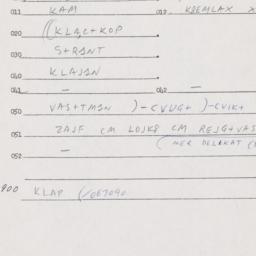 011 KAM 012 KREMLAX X
020 (KLAC+KOP
030 S+RANT
040 KLASAN
041 — 042 —
050 VAS+TMAN )-CVUG+ )-CVIK+
051 ZAJF CM LOJKB CM RESG+VAS
(MER DELAKAT (
052 —
900 KLAP (/067090